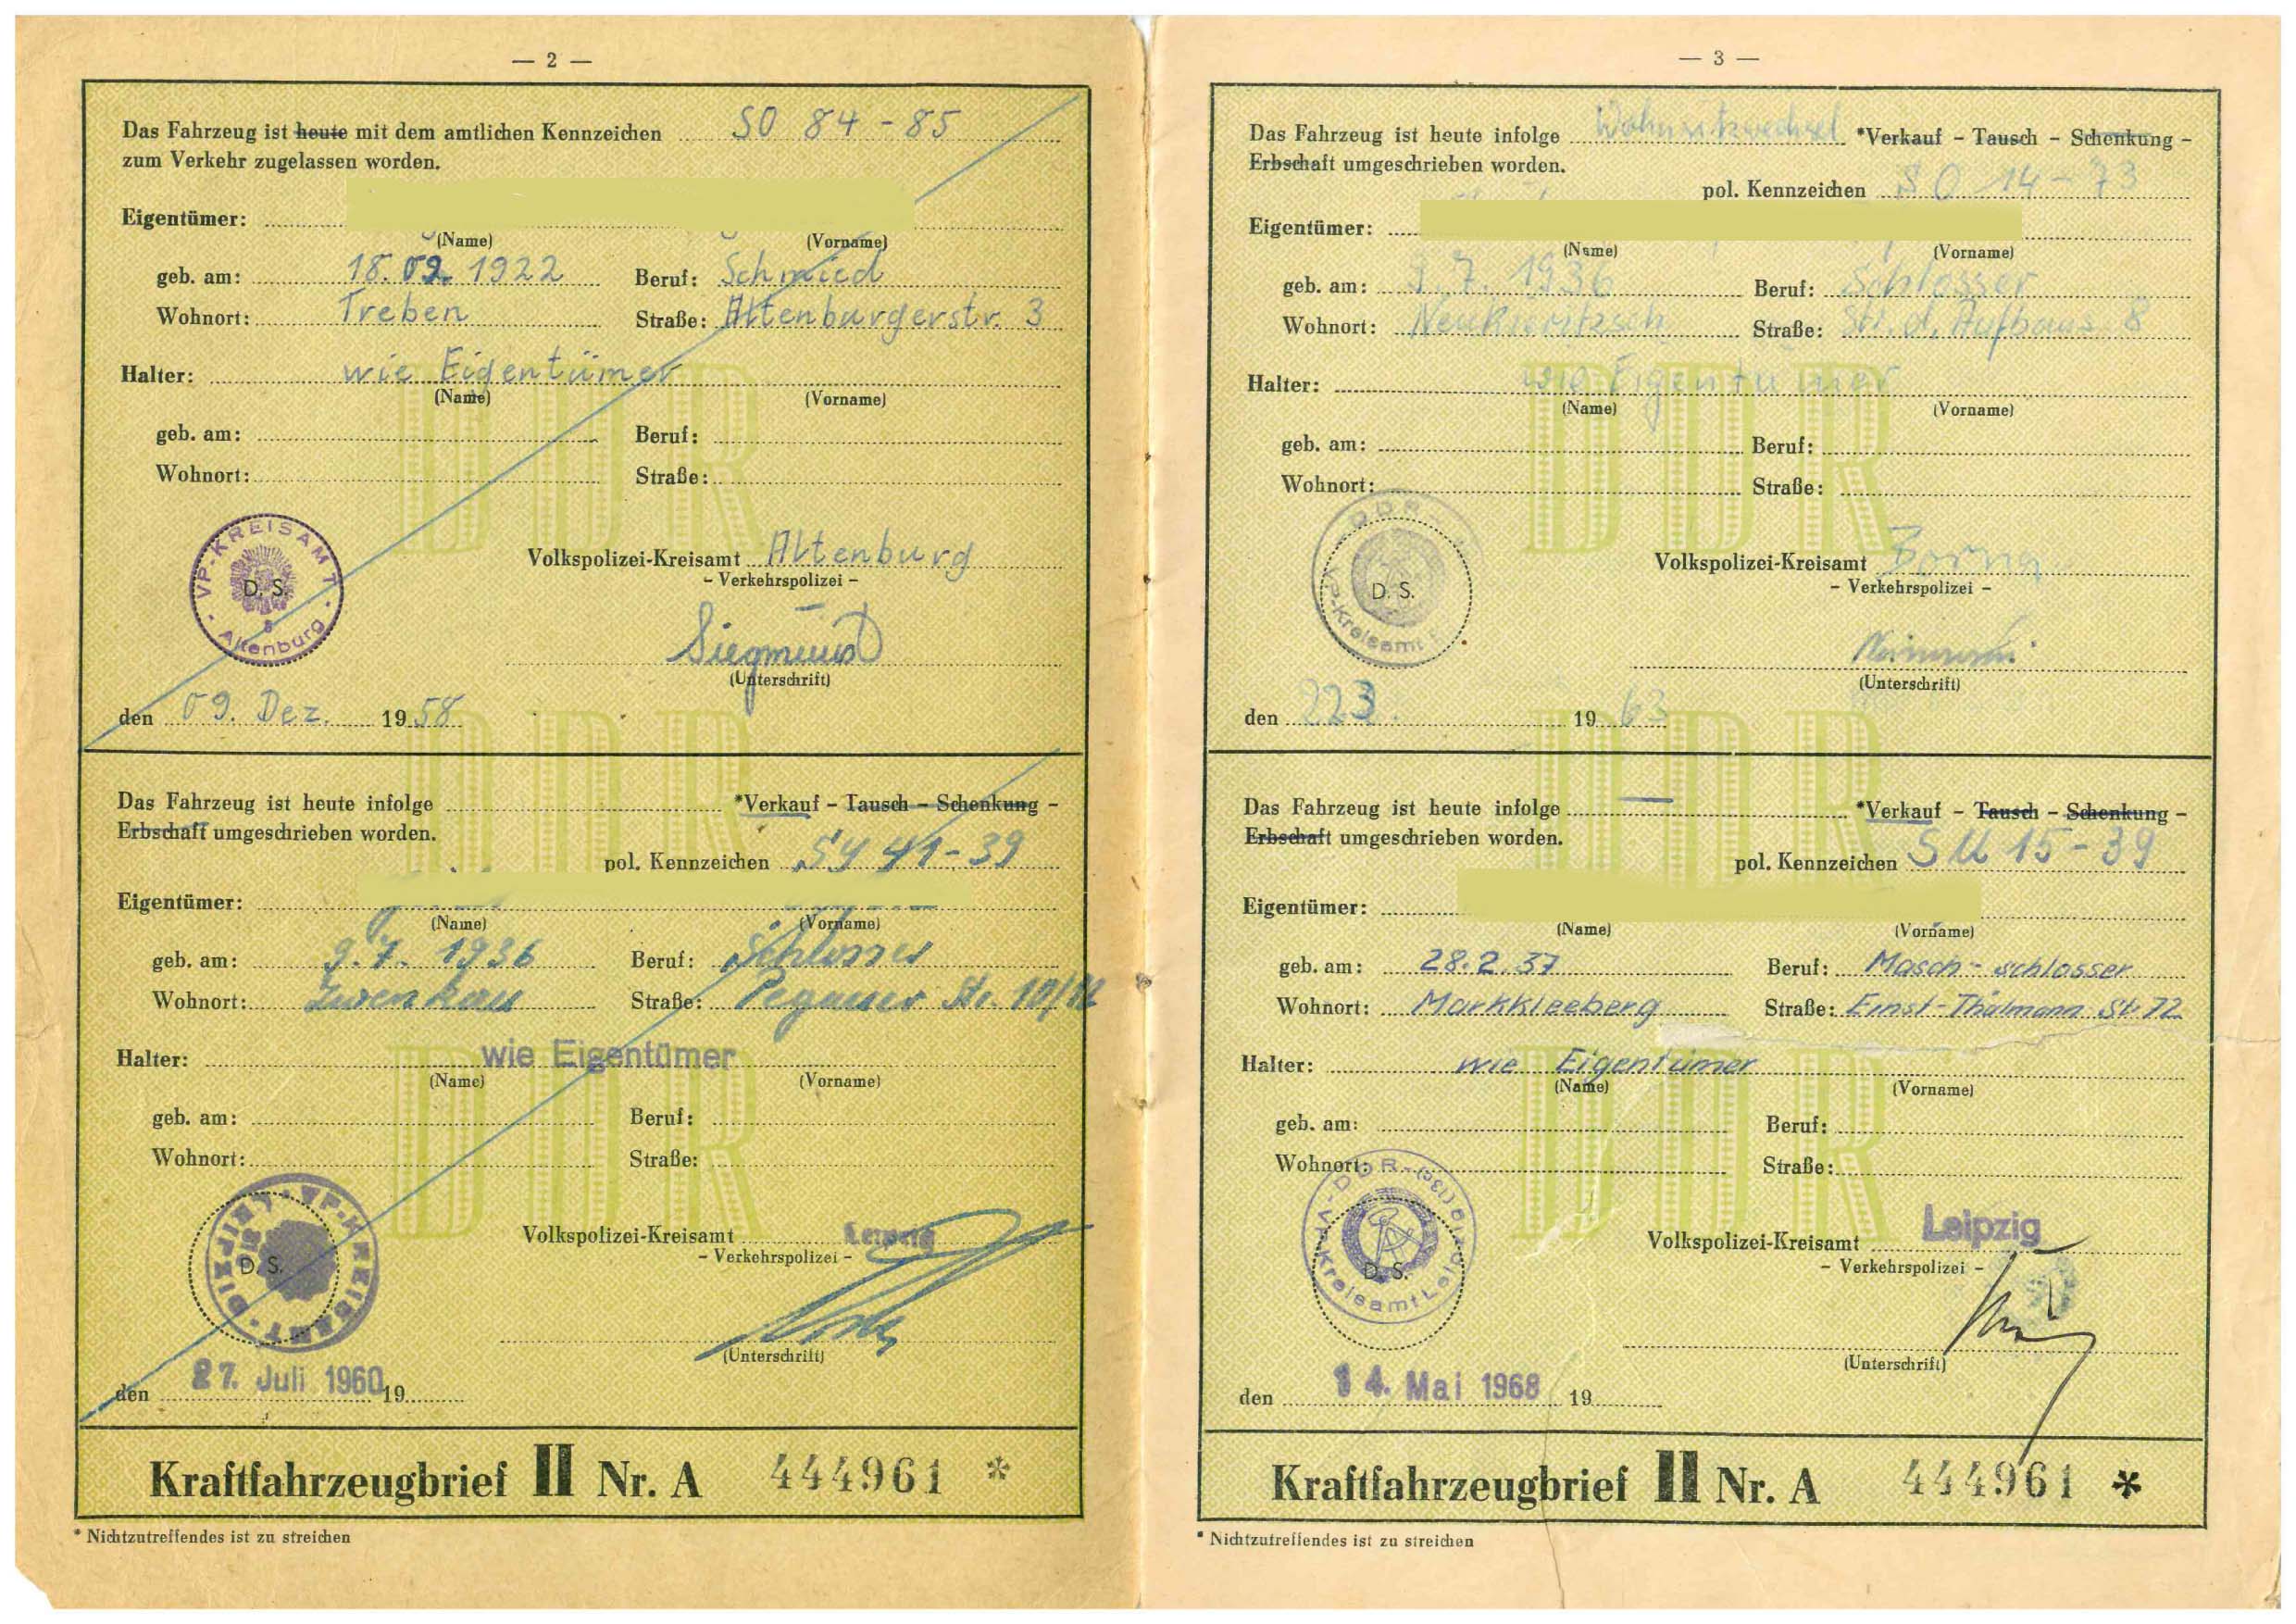 — 2 —
Das Fahrzeug ist heute mit dem amtlichen Kennzeichen SO 84-85
zum Verkehr zugelassen worden.
Eigentümer:
(Name) (Vorname)
geb. am: 18.09.1922 Beruf: Schmied
Wohnort: Treben Straße: Altenburgerstr. 3
Halter: wie Eigentümer
(Name) (Vorname)
geb. am: Beruf:
Wohnort: Straße:
VP-KREISAMT
D. S.
8
Altenburg
Volkspolizei-Kreisamt Altenburg
– Verkehrspolizei –
Siegmund
(Unterschrift)
den 09. Dez. 1958
Das Fahrzeug ist heute infolge *Verkauf – Tausch – Schenkung –
Erbschaft umgeschrieben worden.
pol. Kennzeichen SY 41-39
Eigentümer:
(Name) (Vorname)
geb. am: 9.7. 1936 Beruf: Schlosser
Wohnort: Zwenkau Straße: Pegauer Str.
Halter: wie Eigentümer
(Name) (Vorname)
geb. am: Beruf:
Wohnort: Straße:
VP-KREISAMT LEIPZIG
D. S.
Volkspolizei-Kreisamt Leipzig
– Verkehrspolizei –
(Unterschrift)
den 27. Juli 1960 19
Kraftfahrzeugbrief II Nr. A 444961 *
* Nichtzutreffendes ist zu streichen
— 3 —
Das Fahrzeug ist heute infolge Wohnsitzwechsel *Verkauf – Tausch – Schenkung –
Erbschaft umgeschrieben worden.
pol. Kennzeichen SO 14-73
Eigentümer:
(Name) (Vorname)
geb. am: 9.7. 1936 Beruf: Schlosser
Wohnort: Neukieritzsch Straße: Str. d. Aufbaus 8
Halter: wie Eigentümer
(Name) (Vorname)
geb. am: Beruf:
Wohnort: Straße:
DDR
VP-Kreisamt
D. S.
Volkspolizei-Kreisamt Borna
– Verkehrspolizei –
(Unterschrift)
den 22 3. 1963
Das Fahrzeug ist heute infolge — *Verkauf – Tausch – Schenkung –
Erbschaft umgeschrieben worden.
pol. Kennzeichen SU 15-39
Eigentümer:
(Name) (Vorname)
geb. am: 28.2.37 Beruf: Masch-schlosser
Wohnort: Markkleeberg Straße: Ernst-Thälmann Str. 72
Halter: wie Eigentümer
(Name) (Vorname)
geb. am: Beruf:
Wohnort: Straße:
DDR
VP-Kreisamt Leipzig
D. S.
Volkspolizei-Kreisamt Leipzig
– Verkehrspolizei –
(Unterschrift)
den 14. Mai 1968 19
Kraftfahrzeugbrief II Nr. A 444961 *
* Nichtzutreffendes ist zu streichen